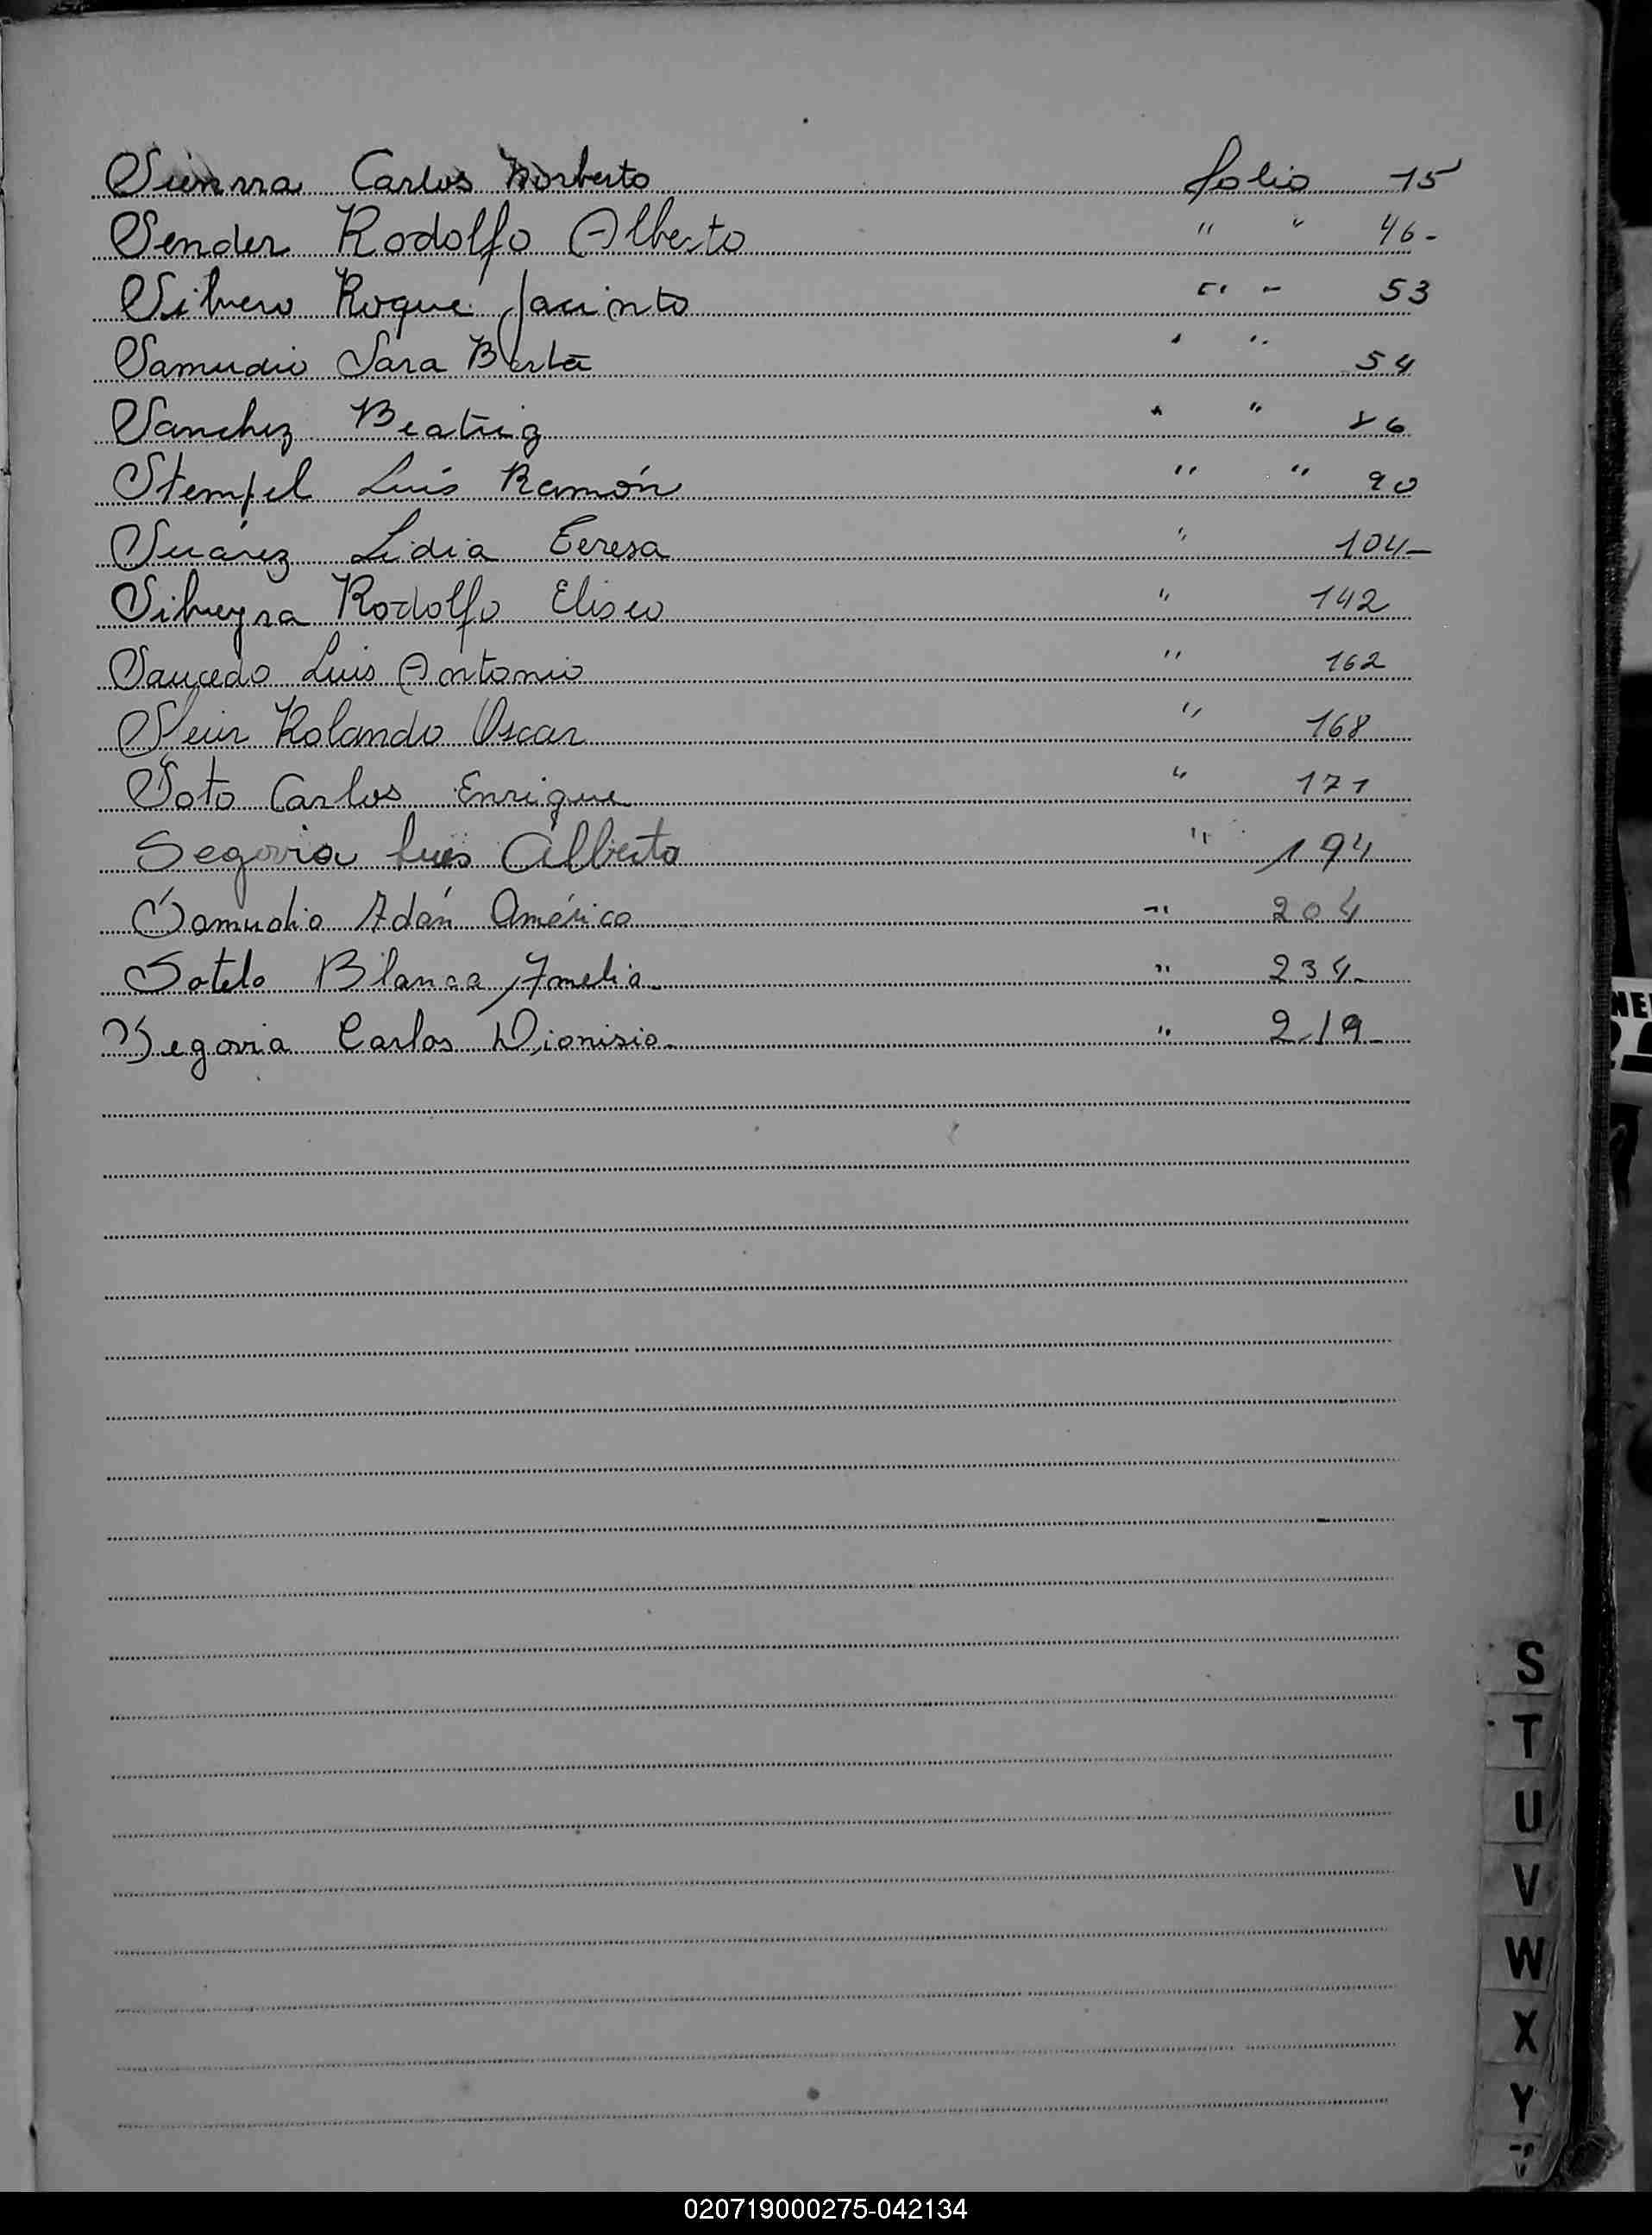 Sienrra Carlos Norberto folio 15
Sender Rodolfo Alberto " " 46-
Silvero Roque Jacinto " " 53
Samudio Sara Berta " " 54
Sanchez Beatriz " " 86
Stempel Luis Ramón " " 90
Suárez Lidia Teresa " 104-
Silveyra Rodolfo Eliseo " 142
Saucedo Luis Antonio " 162
Rolando Oscar " 168
Soto Carlos Enrique " 171
Segovia Luis Alberto " 194
Samudio Adán Américo " 204
Sotelo Blanca Amelia- " 234-
Segovia Carlos Dionisio- " 219-
S
T
U
V
W
X
Y
020719000275-042134